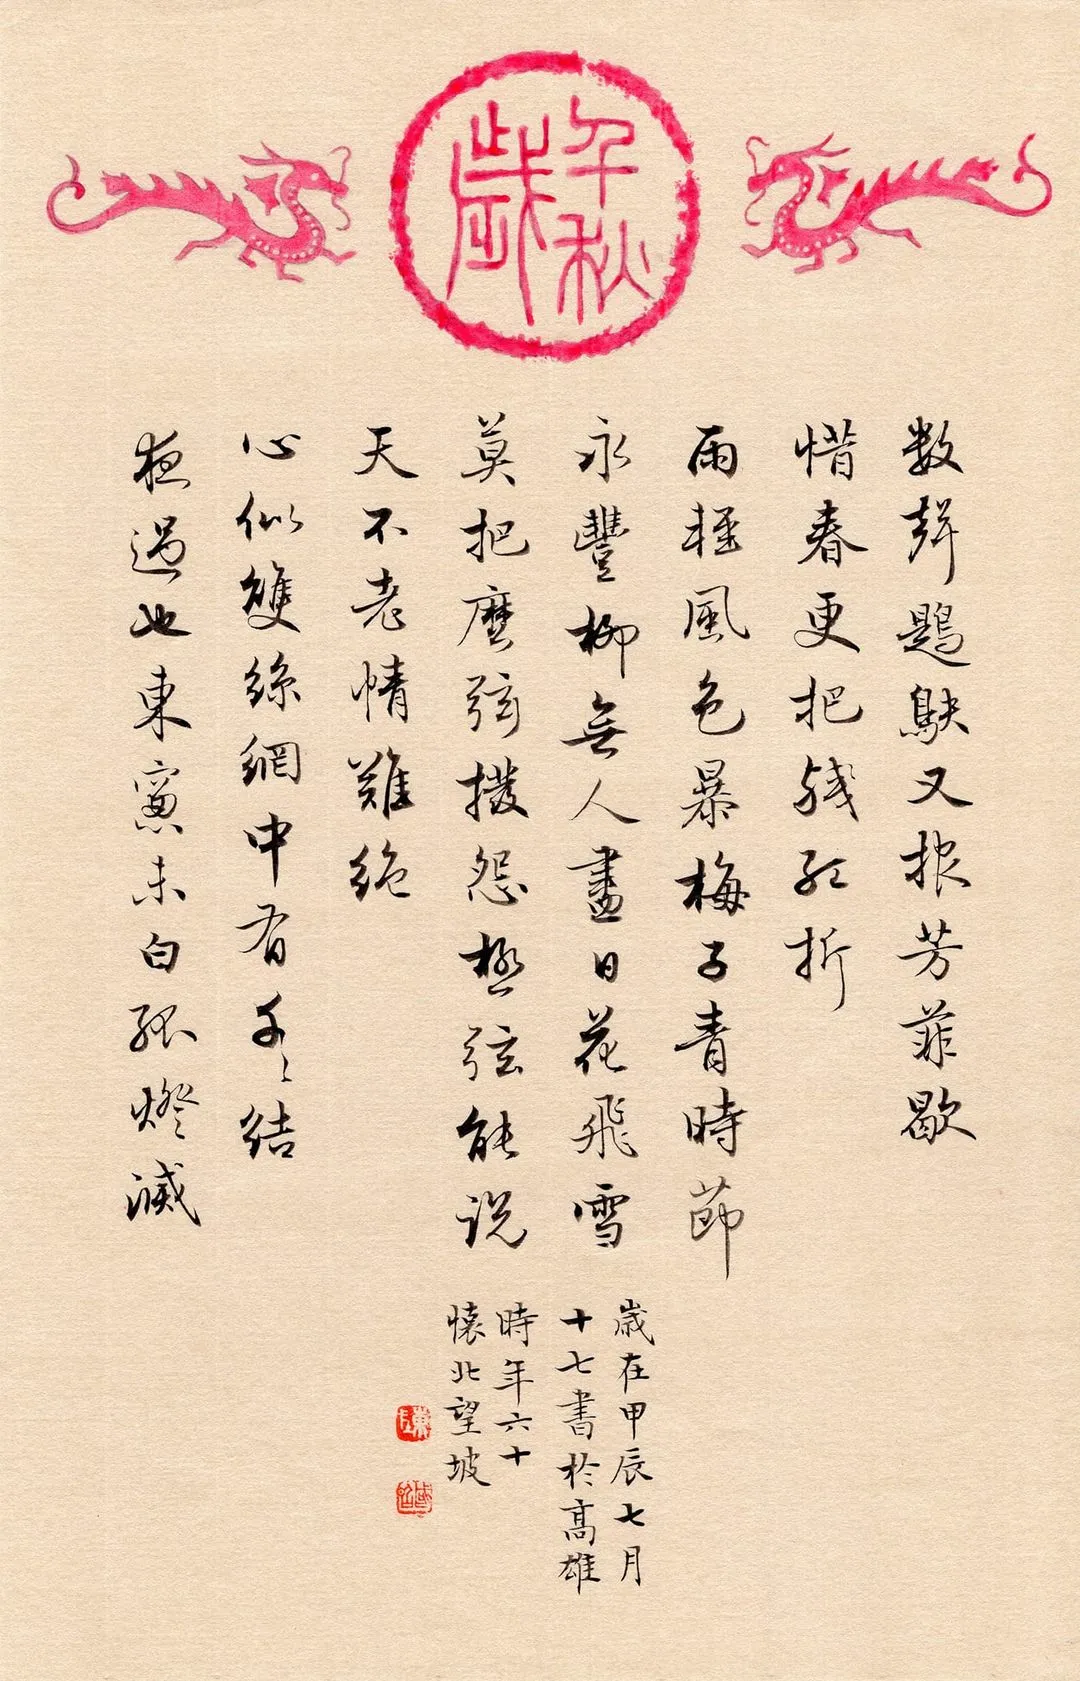 千秋歲
数聲鶗鴃又报芳菲歇
惜春更把残红折
雨輕風色暴梅子青時節
永豐柳無人盡日花飛雪
莫把麽弦撥怨極弦能説
天不老情難絶
心似雙絲網中有千千結
夜過也東窻未白孤燈滅
歲在甲辰七月
十七書於高雄
時年六十
懷北望坡